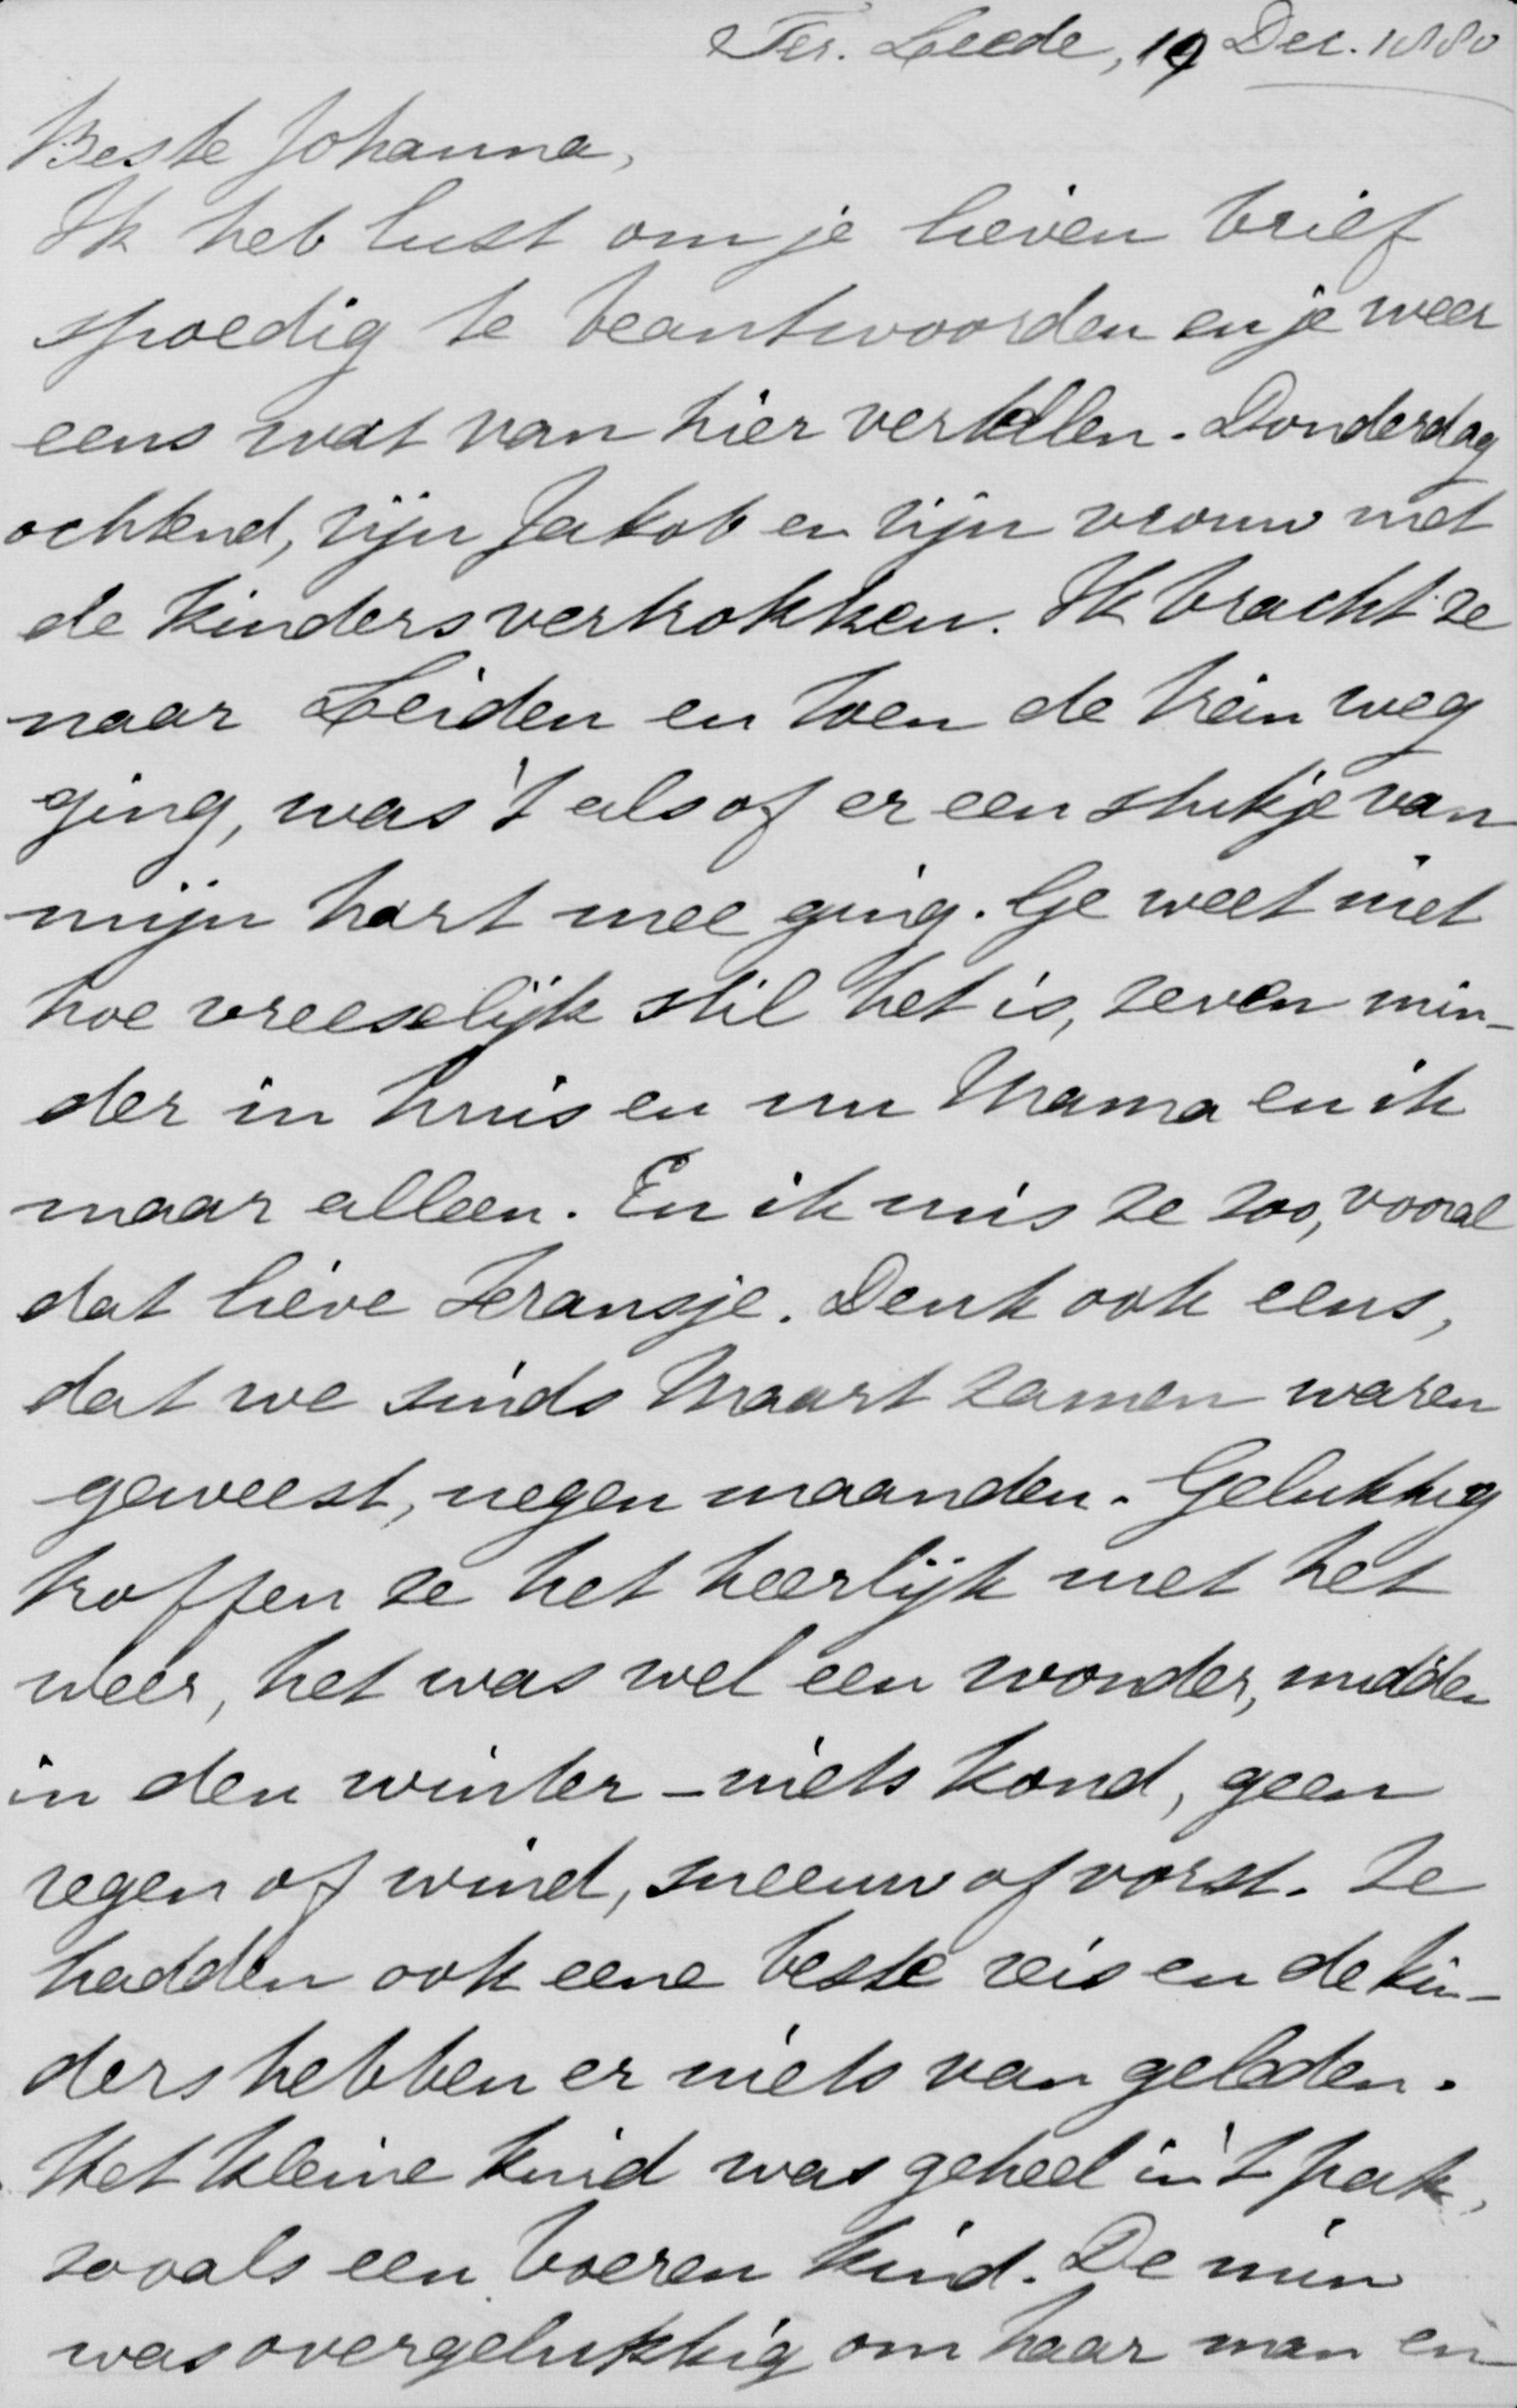 Ter. Leede, 19 Dec. 1880
Beste Johanna,
Ik heb lust om je lieven brief
spoedig te beantwoorden en je weer
eens wat van hier vertellen. Donderdag
ochtend, zijn Jakob en zijn vrouw met
de kinders vertrokken. Ik bracht ze
naar Leiden en toen de trein weg
ging, was 't alsof er een stukje van
mijn hart mee ging. Ge weet niet
hoe vreeselijk stil het is, zeven min-
der in huis en nu Mama en ik
maar alleen. En ik mis ze zoo, vooral
dat lieve Fransje. Denk ook eens,
dat we sinds Maart zamen waren
geweest, negen maanden. Gelukkig
troffen ze het heerlijk met het
weer, het was wel een wonder, midden
in den winter - niets koud, geen
regen of wind, sneeuw of vorst. Ze
hadden ook eene beste reis en de kin-
ders hebben er niets van geleden.
Het kleine kind was geheel in 't pak,
zooals een boeren kind. De min
was overgelukkig om haar man en